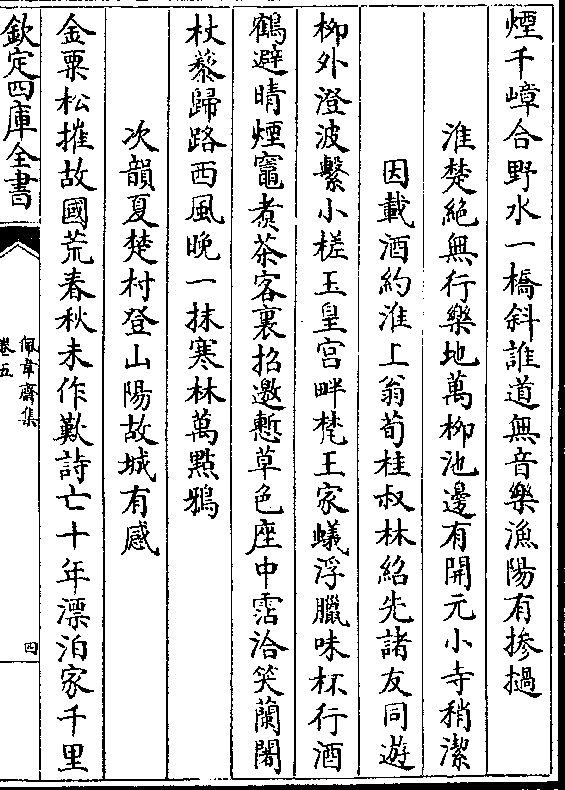 煙千嶂合野水一橋斜誰道無音樂漁陽有摻撾
淮楚絕無行樂地萬柳池邊有開元小寺稍潔
因載酒約淮上翁荀桂叔林紹先諸友同遊
柳外澄波繫小槎玉皇宫畔梵王家蟻浮臘味杯行酒
鶴避晴煙竈煮茶客裏招邀慙草色座中霑洽笑蘭闍
杖藜歸路西風晚一抹寒林萬點鴉
次韻夏楚村登山陽故城有感
金粟松摧故國荒春秋未作歎詩亡十年漂泊家千里
欽定四庫全書
佩韋齋集
卷五
四